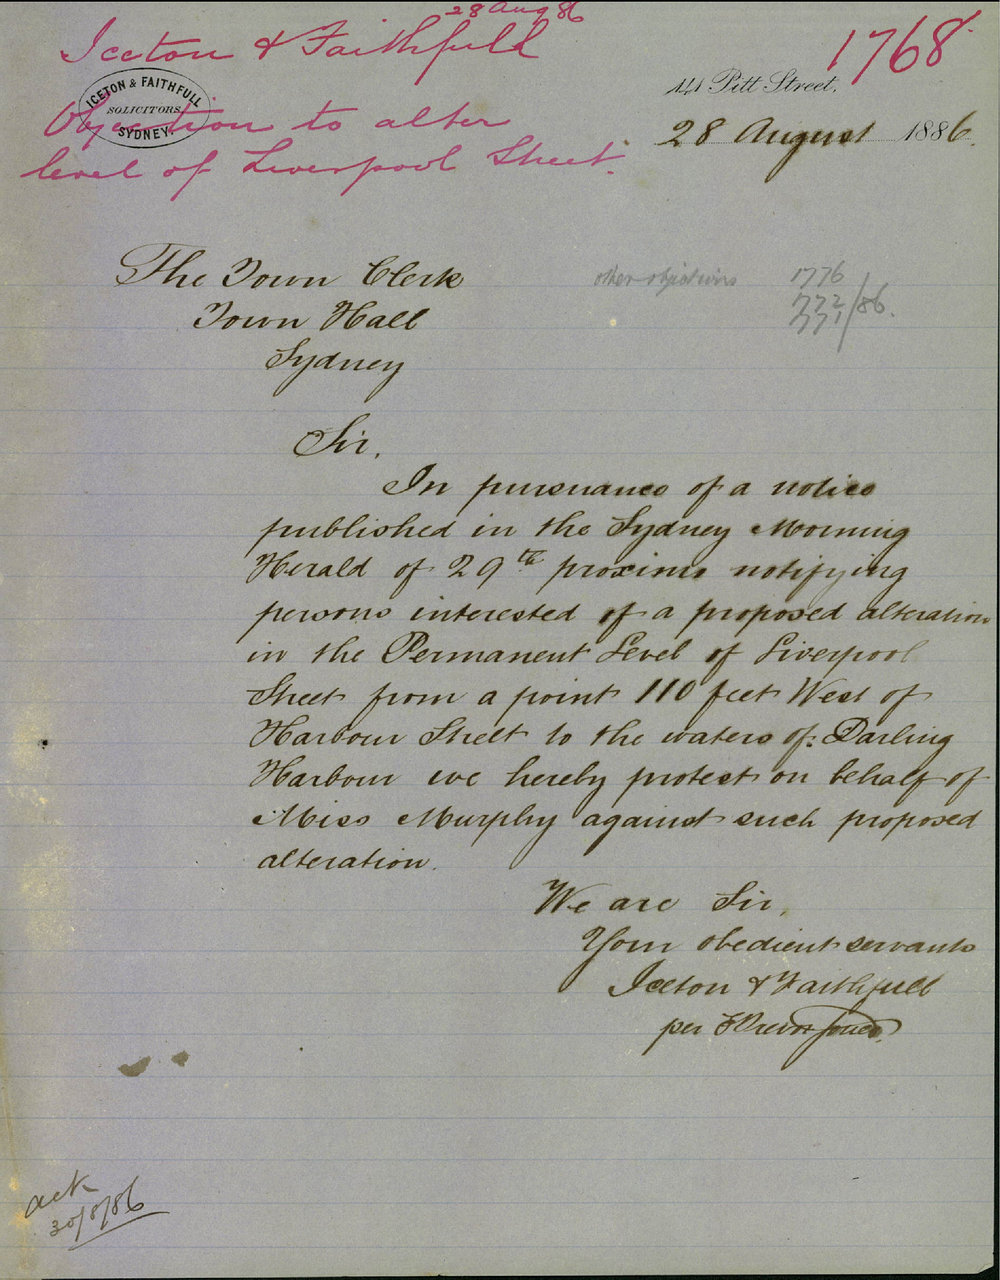 28 Aug 86
Iceton & Faithfull
1768
ICETON & FAITHFULL
SOLICITORS
SYDNEY.
141 Pitt Street,
Objection to alter
level of Liverpool Street.
28 August 1886.
The Town Clerk
Town Hall
Sydney
other objections 1776
772
771/86.
Sir,
In pursuance of a notice
published in the Sydney Morning
Herald of 29th proximo notifying
persons interested of a proposed alteration
in the Permanent Level of Liverpool
Street from a point 110 feet West of
Harbour Street to the waters of Darling
Harbour we hereby protest on behalf of
Miss Murphy against such proposed
alteration.
We are Sir,
Your obedient servants
Iceton & Faithfull
per Jones
ack
30/8/86